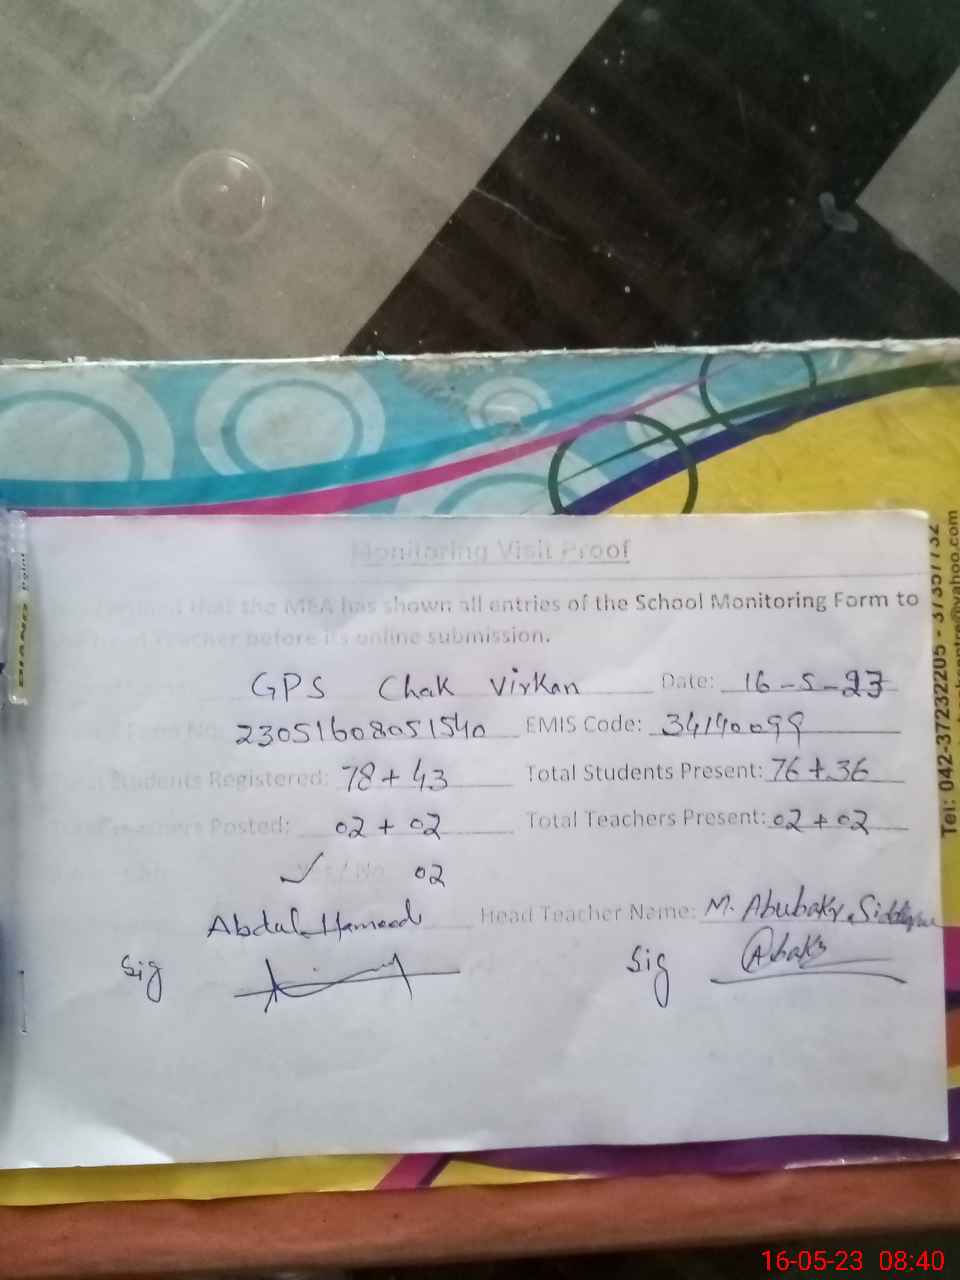 Monitoring Visit Proof
that the MEA has shown all entries of the School Monitoring Form to
Teacher before its online submission.
GPS Chak Virkan Date: 16-5-23
No: 23051608051540 EMIS Code: 34140099
Total Students Registered: 78+43 Total Students Present: 76+36
Total Teachers Posted: 02+02 Total Teachers Present: 02+02
✓ Yes/No 02
Abdul Hameed Head Teacher Name: M. Abubakr Siddique
Sig Sig Abakr
Tel: 042-37232205 - 37357732
@yahoo.com
16-05-23 08:40